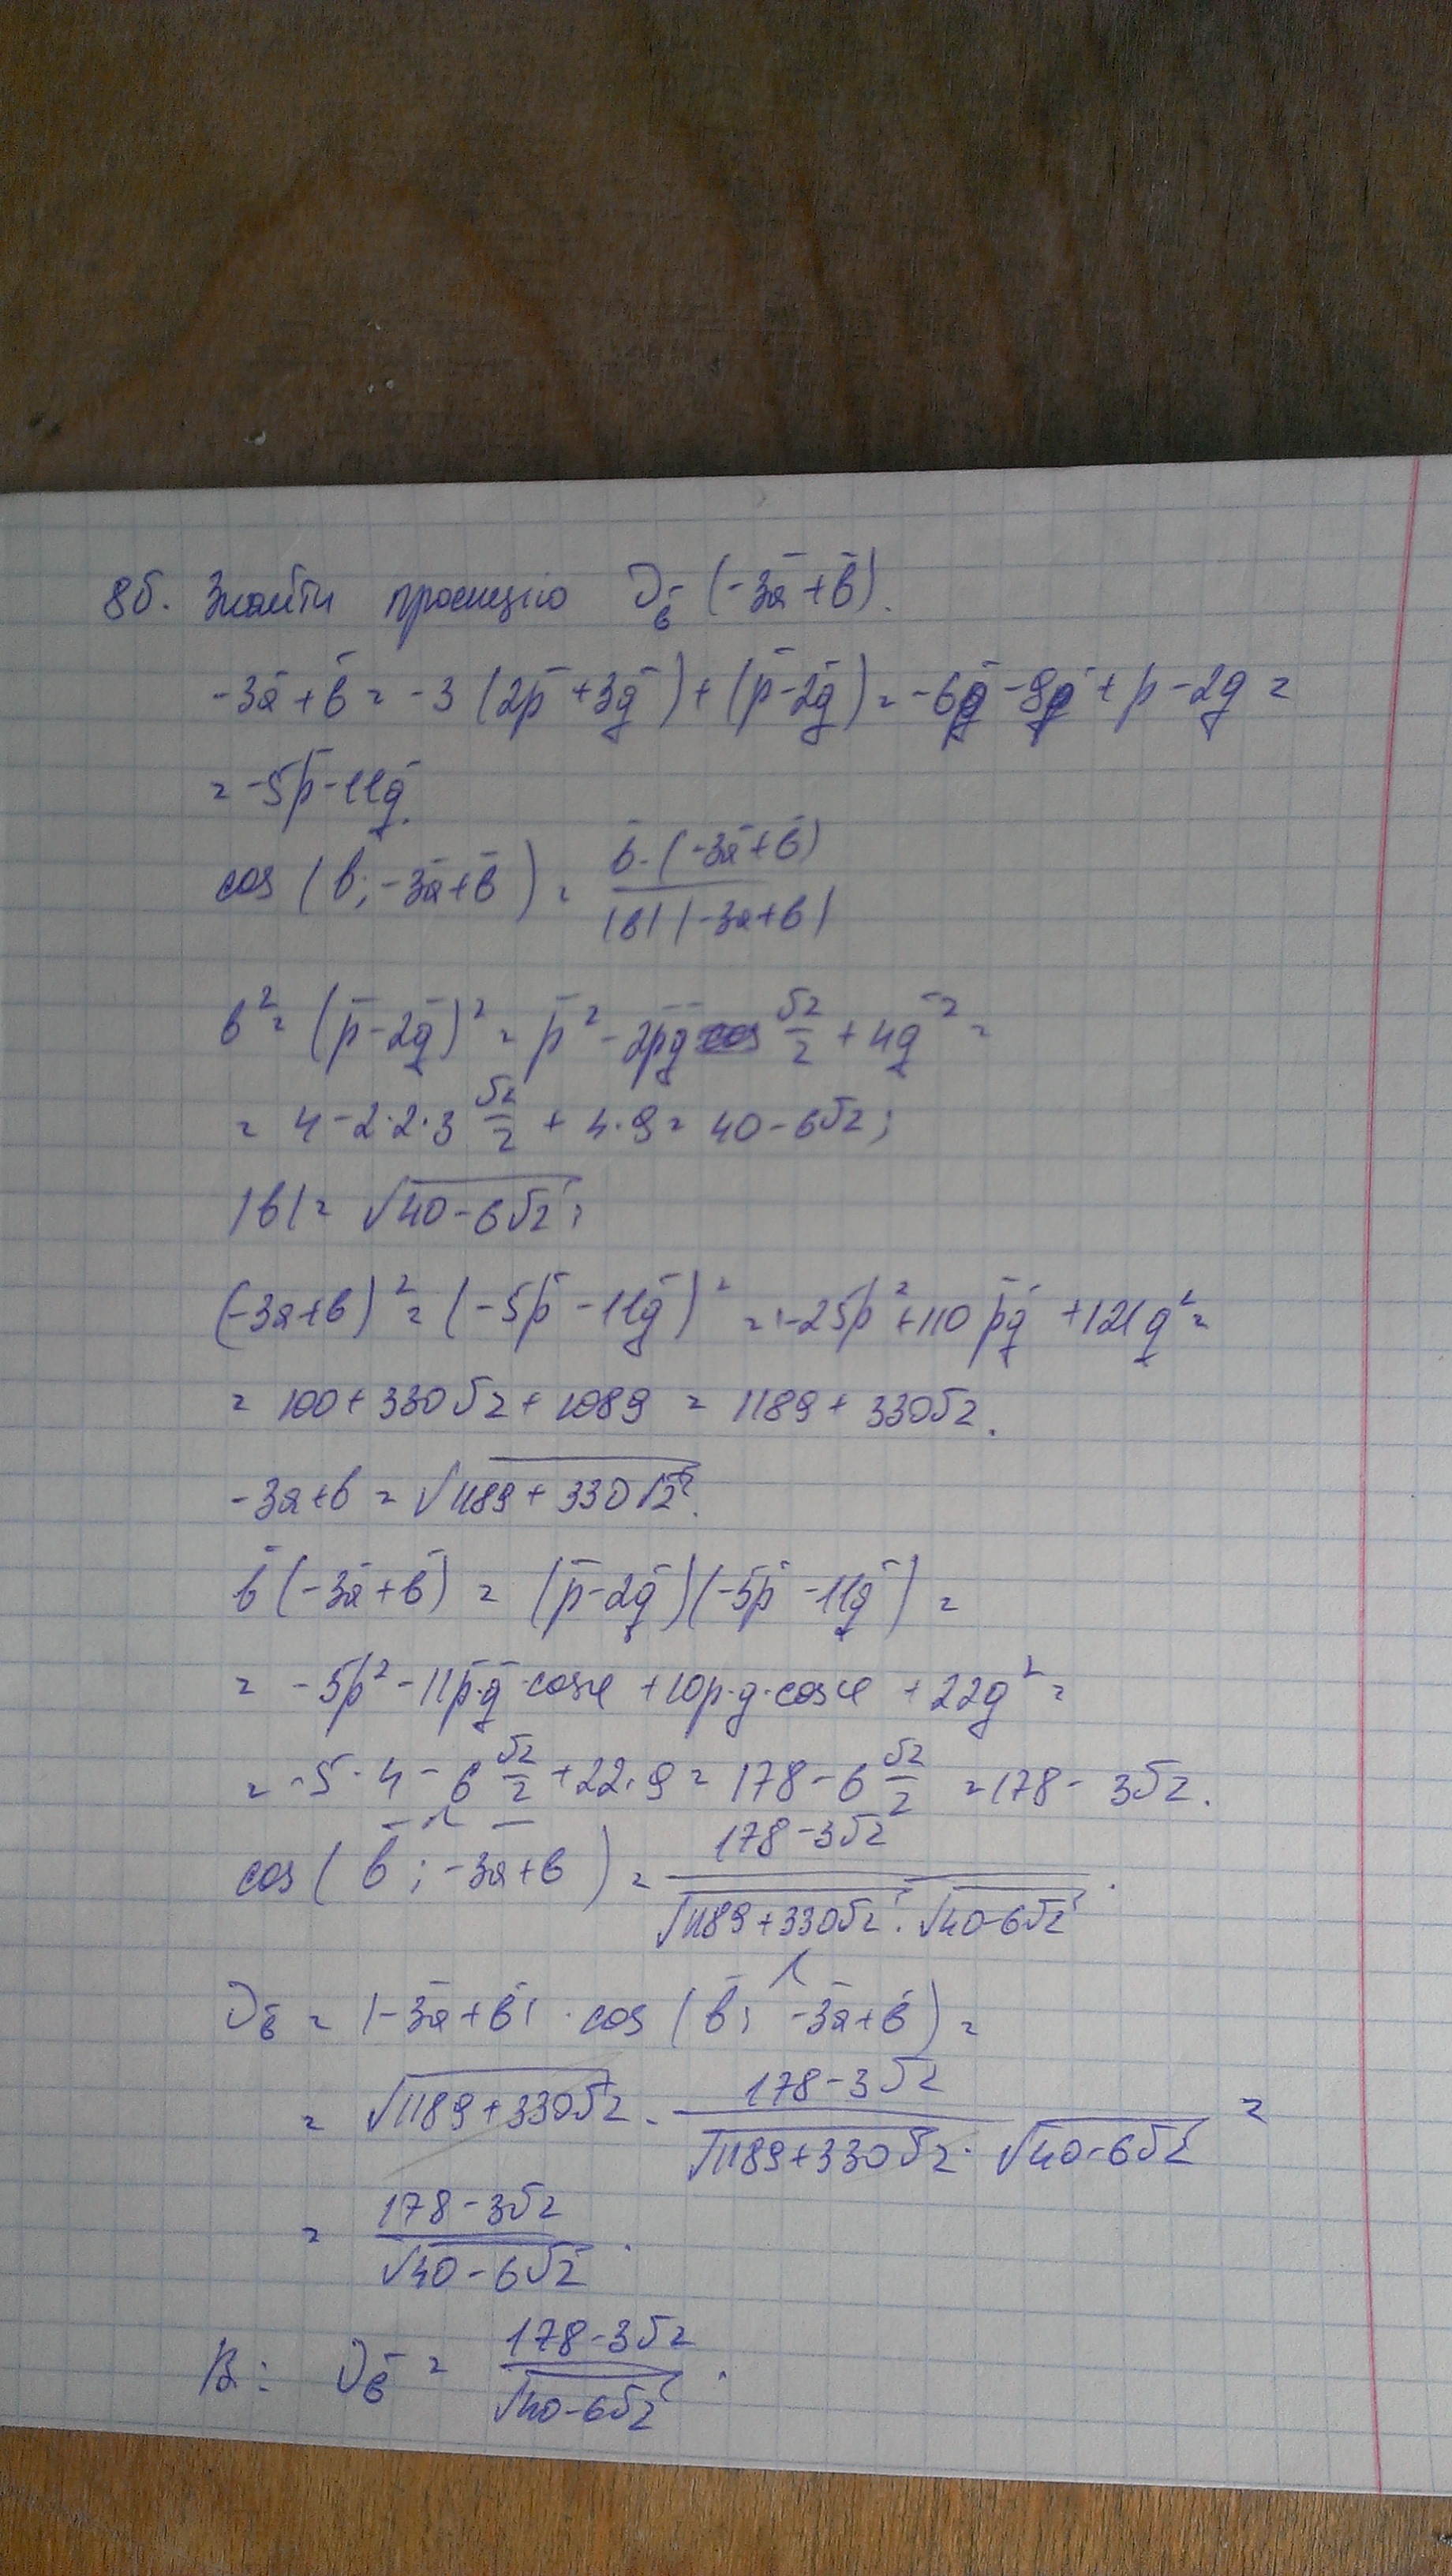 8б. Знайти проекцію Пр_b̄ (-3ā + b̄).
-3ā + b̄ = -3 (2p̄ + 3q̄) + (p̄ - 2q̄) = -6p̄ - 9q̄ + p - 2q =
= -5p̄ - 11q̄.
cos (b̄; -3ā + b̄) = b̄ · (-3ā + b̄) / |b| |-3a + b|
b² = (p̄ - 2q̄)² = p̄² - 2p̄q̄ √2/2 + 4q̄² =
= 4 - 2·2·3 √2/2 + 4·9 = 40 - 6√2;
|b| = √(40 - 6√2);
(-3a + b)² = (-5p̄ - 11q̄)² = 25p² + 110 p̄q̄ + 121q² =
= 100 + 330√2 + 1089 = 1189 + 330√2.
-3a + b = √(1189 + 330√2).
b̄ (-3ā + b̄) = (p̄ - 2q̄)(-5p̄ - 11q̄) =
= -5p² - 11p̄·q̄·cosφ + 10p·q·cosφ + 22q² =
= -5·4 - 6 √2/2 + 22·9 = 178 - 6 √2/2 = 178 - 3√2.
cos (b̄ ; -3a + b) = (178 - 3√2) / (√(1189 + 330√2) · √(40 - 6√2)).
Пр_b̄ = |-3ā + b̄| · cos (b̄; -3ā + b̄) =
= √(1189 + 330√2) · (178 - 3√2) / (√(1189 + 330√2) · √(40 - 6√2)) =
= (178 - 3√2) / √(40 - 6√2).
В: Пр_b̄ = (178 - 3√2) / √(40 - 6√2).